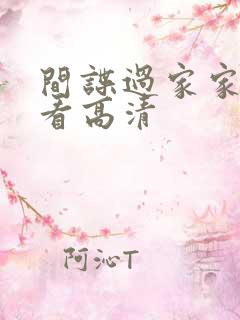 間諜過家家
看高清
阿沁T